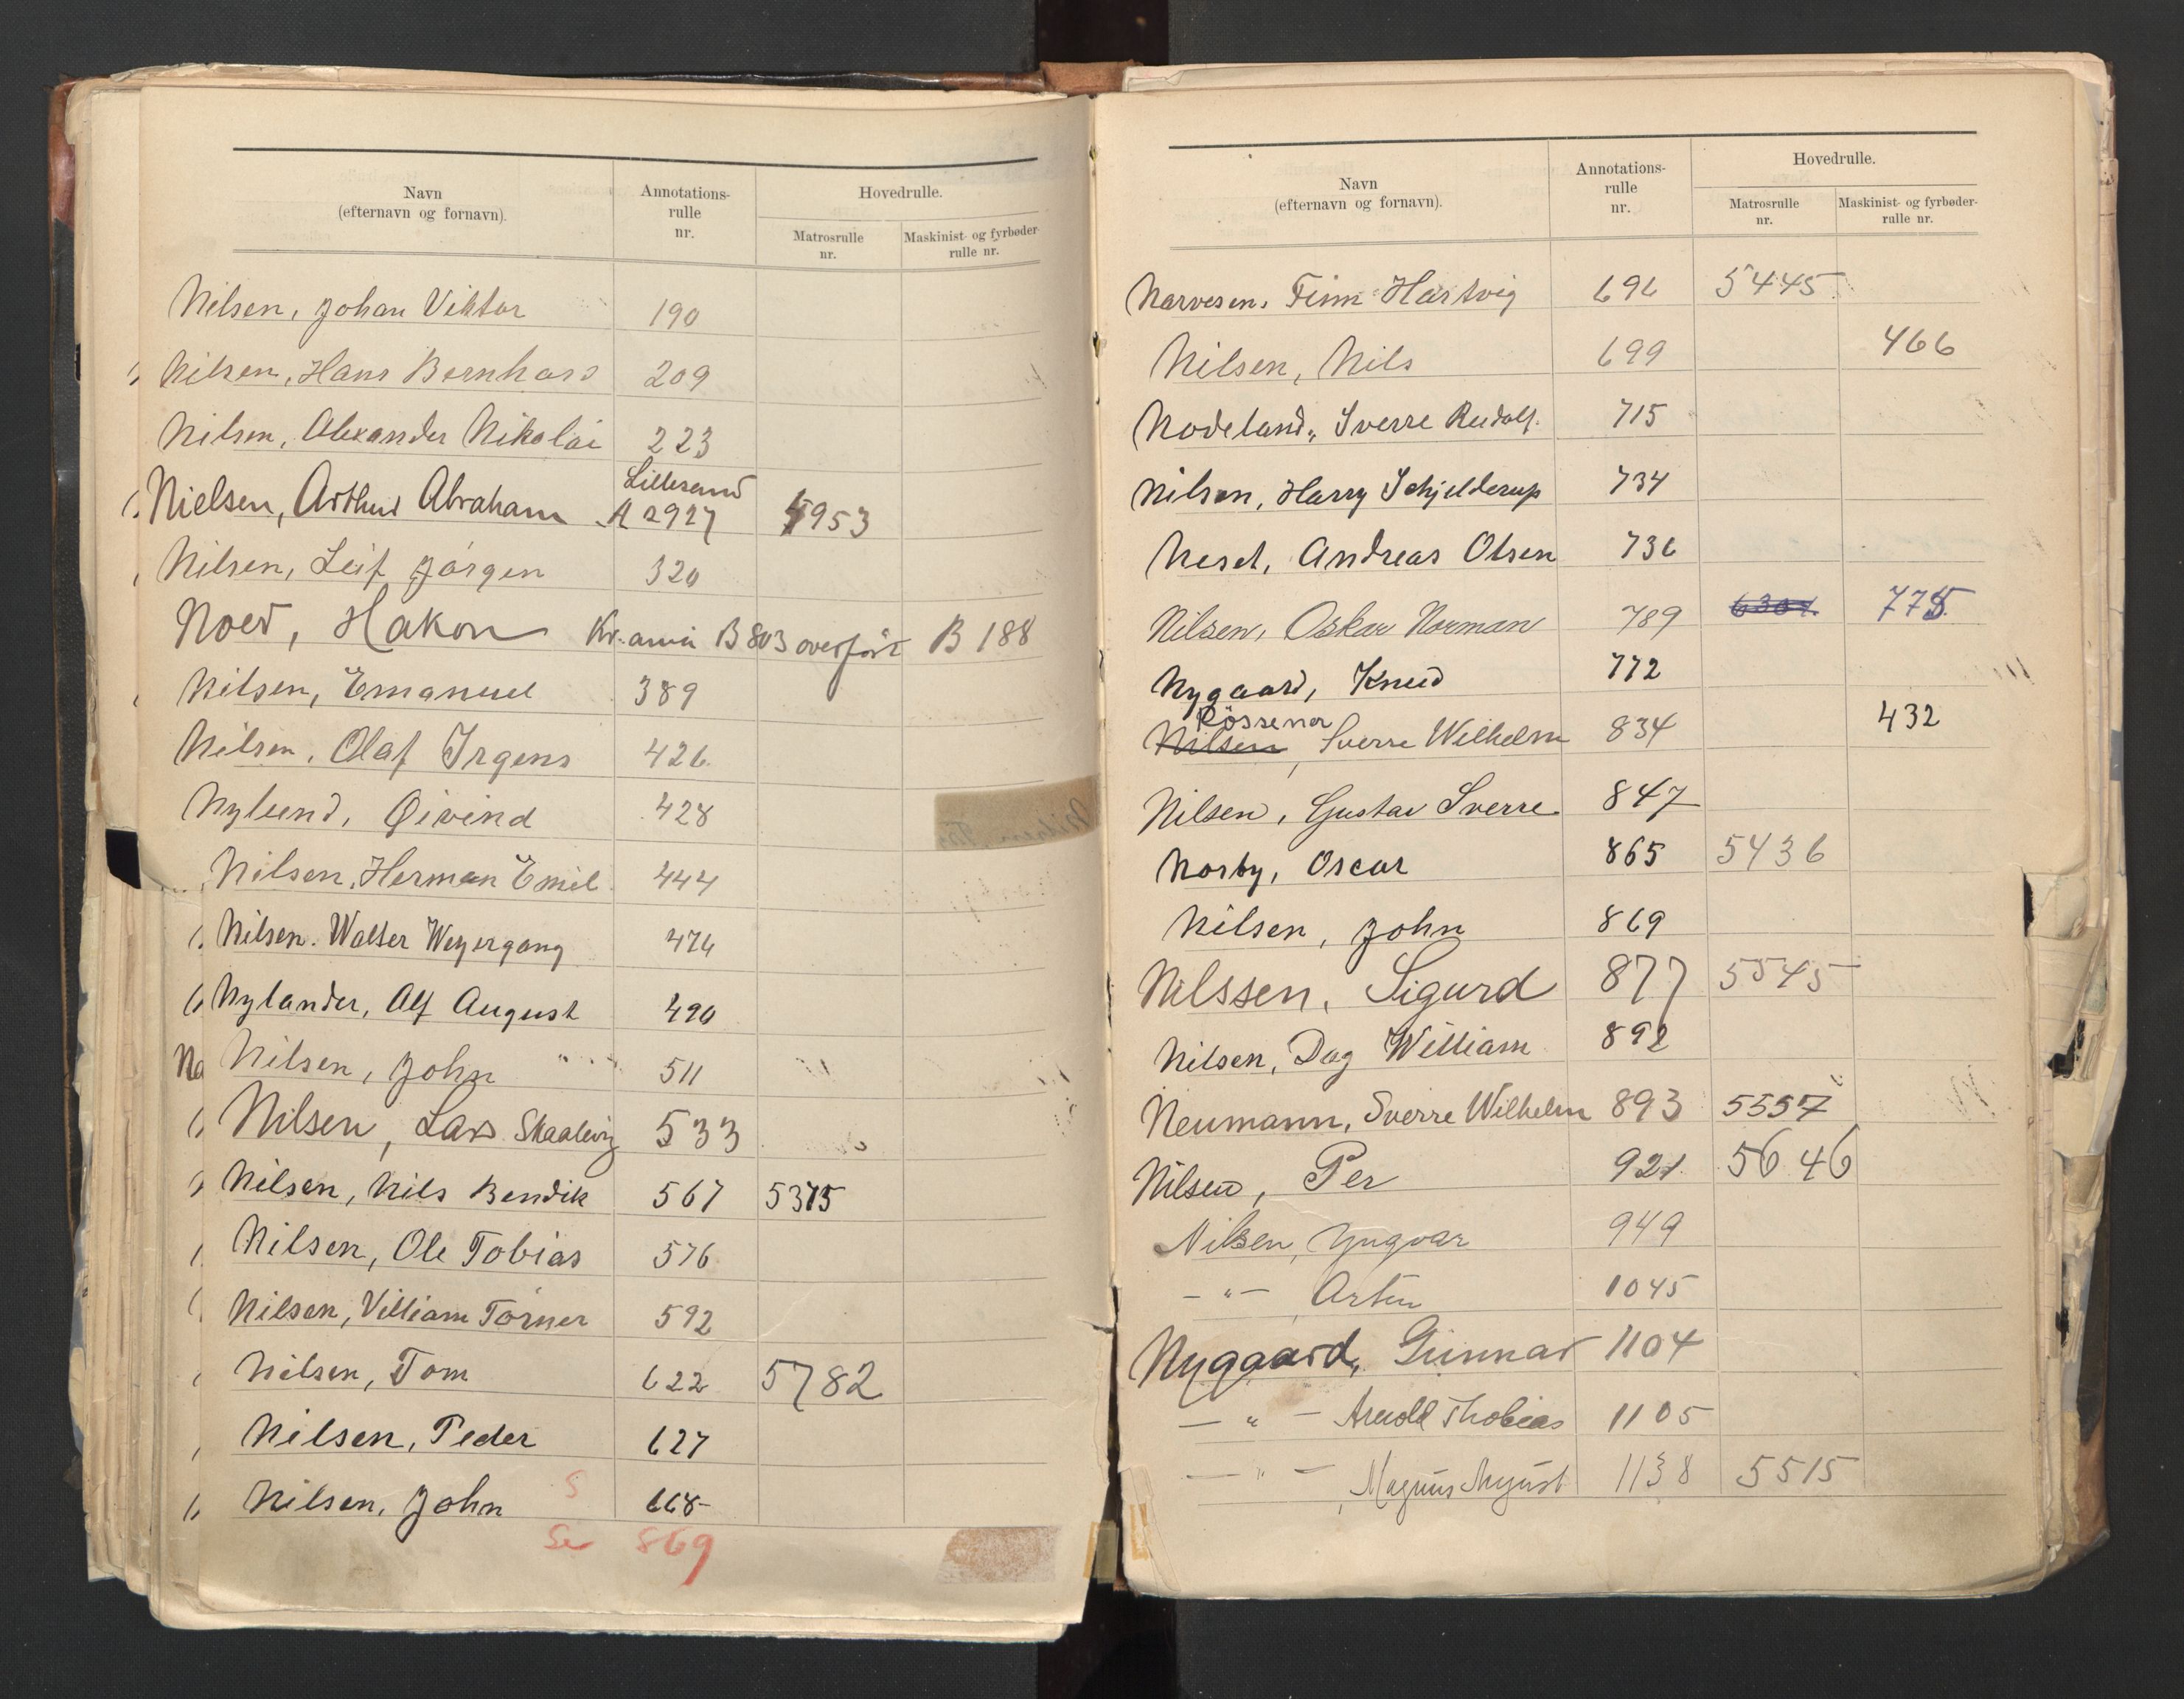 Navn
(efternavn og fornavn).
Annotations-
rulle
nr.
Hovedrulle.
Matrosrulle
nr.
Maskinist- og fyrbøder-
rulle nr.
Nilsen, Johan Viktor 190
Nilsen, Hans Bernhard 209
Nilsen, Alexander Nikolai 223
Lillesand
Nielsen, Arthur Abraham A 2927 4953
Nilsen, Leif Jørgen 320
Noed, Hakon Kr.ania B 803 overført B 188
Nilsen, Emanuel 389
Nilsen, Olaf Irgens 426
Nylund, Øivind 428
Nilsen, Herman Emil 444
Nilsen. Walter Weyergang 474
Nylander, Alf August 490
Nilsen, John 511
Nilsen, Lars Skaalevig 533
Nilsen, Nils Bendik 567 5375
Nilsen, Ole Tobias 576
Nilsen, Villiam Törner 592
Nilsen, Tom 622 5782
Nilsen, Peder 627
Nilsen, John S 668
Se 869
Navn
(efternavn og fornavn).
Annotations-
rulle
nr.
Hovedrulle.
Matrosrulle
nr.
Maskinist- og fyrbøder-
rulle nr.
Narvesen, Finn Hartvig 696 5445
Nilsen, Nils 699 466
Nodeland, Sverre Rudolf. 715
Nilsen, Harry Schjelderup 734
Neset, Andreas Olsen 736
Nilsen, Oskar Norman 789 6301. 775.
Nygaard, Knud 772
Rössener
Nilsen, Sverre Wilhelm 834 432
Nilsen, Gustav Sverre 847
Norby, Oscar 865 5436
Nilsen, John 869
Nilssen, Sigurd 877 5545
Nilsen, Dag William 892
Neumann, Sverre Wilhelm 893 5557
Nilsen, Per 921. 5646
Nilsen, Yngvar 949
- " - Arten 1045
Nygaard, Gunnar 1104
- " - Arnold Thobias 1105
- " - , Magnus August 1138 5515